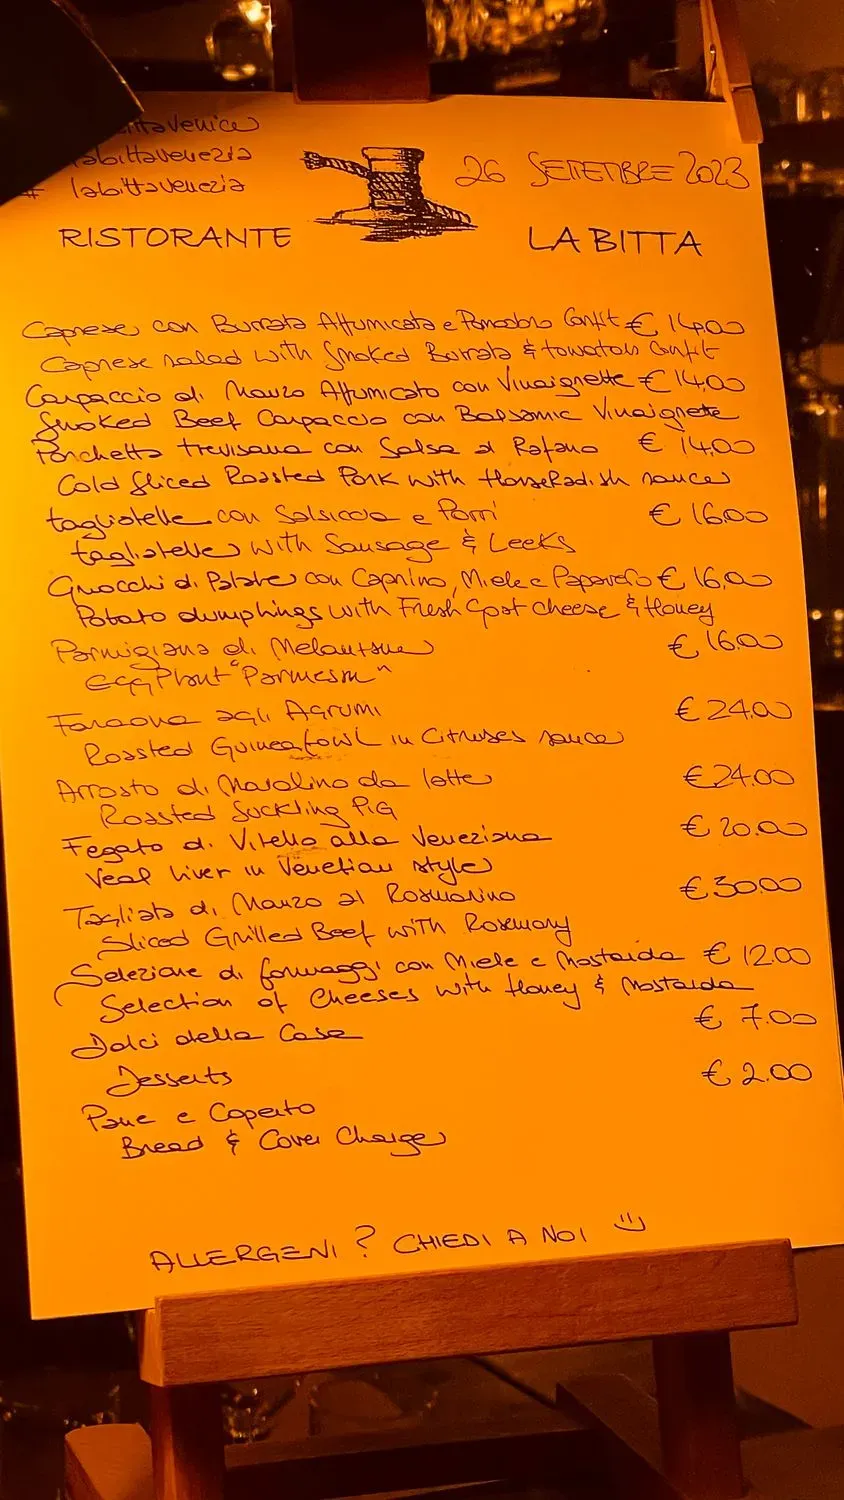 labittavenezia
# labittavenezia
26 SETTEMBRE 2023
RISTORANTE LA BITTA
Caprese con Burrata Affumicata e Pomodoro Confit € 14,00
Caprese salad with Smoked Burrata & tomatoes Confit
Carpaccio di Manzo Affumicato con Vinaigrette € 14,00
Smoked Beef Carpaccio con Balsamic Vinaigrette
Porchetta trevisana con Salsa al Rafano € 14,00
Cold Sliced Roasted Pork with HorseRadish sauce
tagliatelle con Salsiccia e Porri € 16.00
tagliatelle with Sausage & Leeks
Gnocchi di Patate con Caprino, Miele e Papavero € 16,00
Potato dumphings with Fresh Goat cheese & Honey
Parmigiana di Melanzane € 16.00
EggPlant "Parmesan"
Faraona agli Agrumi € 24.00
Roasted Guineafowl in Citruses sauce
Arrosto di Maialino da latte € 24.00
Roasted Suckling Pig
Fegato di Vitello alla Veneziana € 20.00
Veal liver in Venetian style
Tagliata di Manzo al Rosmarino € 30.00
Sliced Grilled Beef with Rosemary
Selezione di formaggi con Miele e Mostarda € 12.00
Selection of Cheeses with Honey & Mostarda
Dolci della Casa € 7.00
Desserts
Pane e Coperto € 2.00
Bread & Cover Charge
ALLERGENI? CHIEDI A NOI